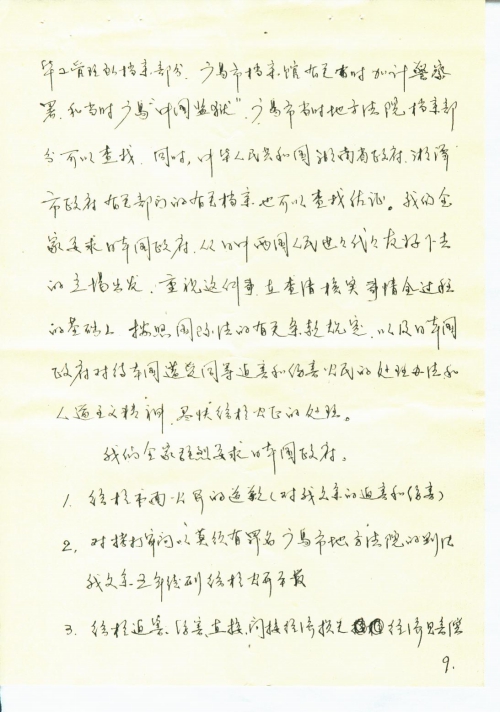 华工管理的档案部分。广岛市档案馆有无当时加计警察
署和当时广岛“中国监狱”，广岛市当时地方法院档案部
分可以查找。同时，中华人民共和国湖南省政府、湘潭
市政府有关部门的有关档案也可以查找佐证。我们全
家要求日本国政府，从日中两国人民世世代代友好下去
的立场出发，重视这件事，在查清核实事情全过程
的基础上，按照国际法的有关条款规定，以及日本国
政府对待本国遭受同等迫害和伤害公民的处理办法和
人道主义精神，尽快给于公正的处理。
我们全家强烈要求日本国政府。
1. 给于书面公开的道歉（对我父亲的迫害和伤害）
2. 对拷打审问以莫须有罪名广岛市地方法院的判决
我父亲五年徒刑给于公开平反
3. 给于迫害、伤害直接、间接经济损失 经济赔偿
9.